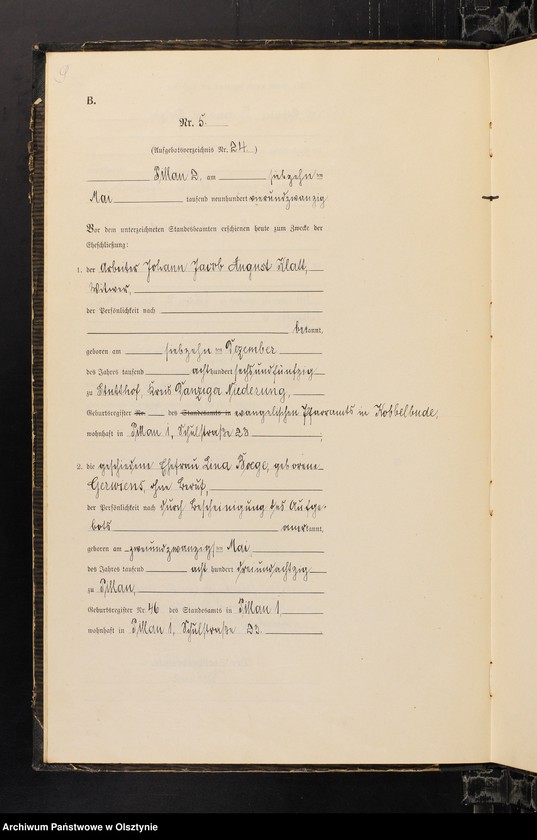 9
B.
Nr. 5.
(Aufgebotsverzeichnis Nr. 24.)
Pillau 2. am siebzehnten
Mai tausend neunhundert vierundzwanzig
Vor dem unterzeichneten Standesbeamten erschienen heute zum Zwecke der
Eheschließung:
1. der Arbeiter Johann Jacob August Klatt,
Witwer,
der Persönlichkeit nach
bekannt,
geboren am siebzehnten Dezember
des Jahrs tausend achthundert sechsundfünfzig
zu Stutthof, Kreis Danziger Niederung,
Geburtsregister Nr. des Standesamts in evangelischen Pfarramts in Kobbelbude,
wohnhaft in Pillau 1, Schulstraße 23
;
2. die geschiedene Ehefrau Lina Boege, geborene
Gerwiens, ohne Beruf,
der Persönlichkeit nach durch Bescheinigung des Aufge-
bots anerkannt,
geboren am zweiundzwanzigsten Mai
des Jahrs tausend acht hundert dreiundachtzig
zu Pillau,
Geburtsregister Nr. 46 des Standesamts in Pillau 1,
wohnhaft in Pillau 1, Schulstraße 23.
Archiwum Państwowe w Olsztynie